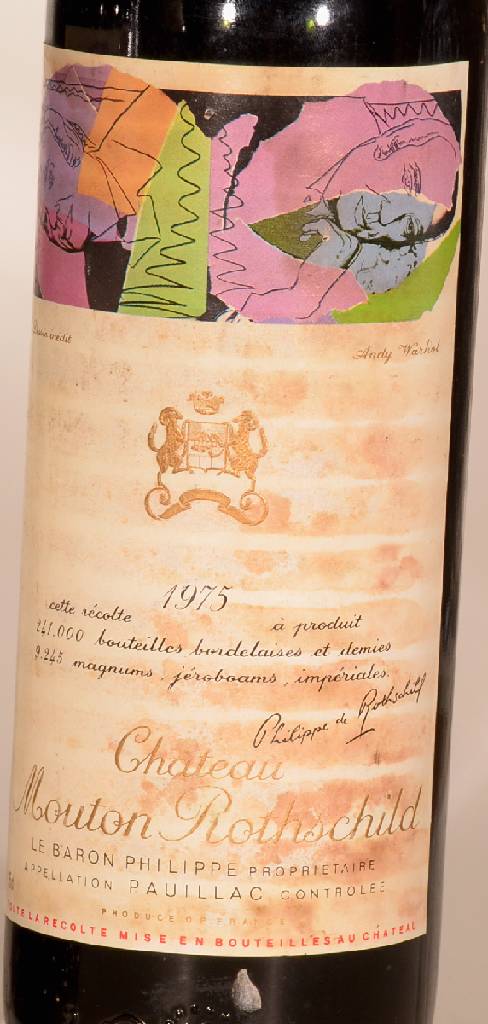 Dessin inédit
Andy Warhol
1975
cette récolte
à produit
241.000 bouteilles bordelaises et demies
9.245 magnums, jéroboams, impériales.
Philippe de Rothschild
Chateau
Mouton Rothschild
LE BARON PHILIPPE PROPRIETAIRE
APPELLATION PAUILLAC CONTROLEE
PRODUCE OF FRANCE
TOUTE LA RECOLTE MISE EN BOUTEILLES AU CHATEAU